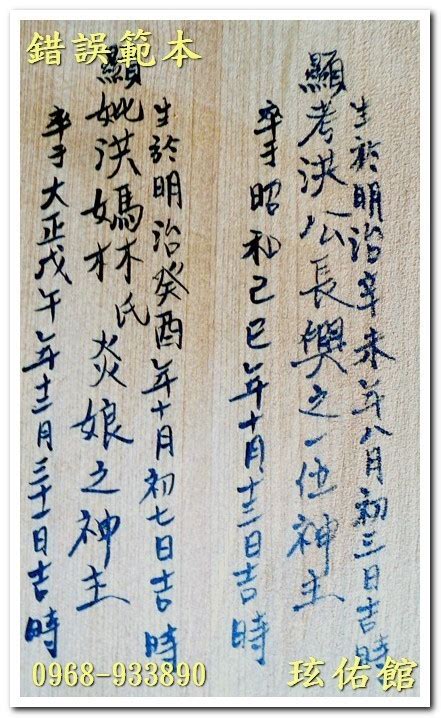 錯誤範本
生於明治辛未年八月初三日吉時
顯考洪公長興之一位神主
卒于昭和己巳年十月十二日吉時
生於明治癸酉年十月初七日吉時
顯妣洪媽林氏炎娘之神主
卒于大正戊午年十二月三十一日吉時
0968-933890
玹佑館